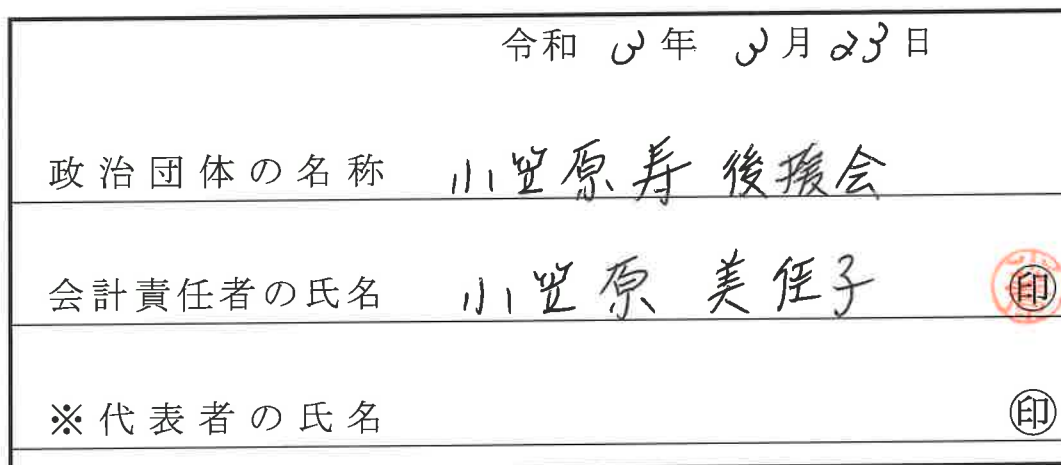 令和 3年 3月23日
政治団体の名称 小笠原寿後援会
会計責任者の氏名 小笠原 美佳子 印
※代表者の氏名 印